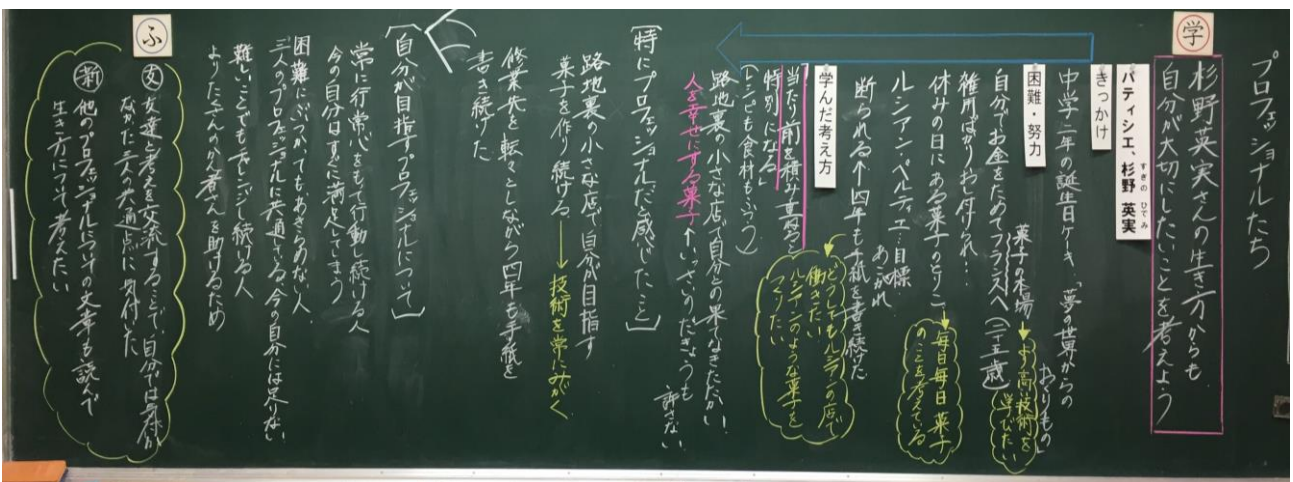 プロフェッショナルたち
学
杉野英実さんの生き方からも
自分が大切にしたいことを考えよう
パティシエ、杉野 英実
すぎの ひでみ
きっかけ
中学二年の誕生日ケーキ、「夢の世界からの
おくりもの」
困難・努力
菓子の本場→より高い技術を
学びたい
自分でお金をためてフランスへ(二十五歳)
雑用ばかりおし付けられ…
休みの日にある菓子のとりこ→毎日毎日菓子
のことを考えている
ルシアン・ペルティエ…目標
あこがれ
断られる↑四年も手紙を書き続けた
どうしてもルシアンの店で
働きたい
ルシアンのような菓子を
つくりたい
学んだ考え方
「当たり前を積み重ねると
特別になる」
(レシピも食材もふつう)
路地裏の小さな店で自分との果てなきたたかい
人を幸せにする菓子↑いっさいのだきょうも
許さない
[特にプロフェッショナルだと感じたこと]
路地裏の小さな店で自分が目指す
菓子を作り続ける→技術を常にみがく
修業先を転々としながら四年も手紙を
書き続けた
[自分が目指すプロフェッショナルについて]
常に行常心をもて行動し続ける人
今の自分はすぐに満足してしまう
困難にぶつかってもあきらめない人
三人のプロフェッショナルに共通している、今の自分には足りない
難しいことでもチャレンジし続ける人
よりたくさんのか者さんを助けるため
ふ
友 友達と考えを交流することで、自分では気付か
なかった三人の共通点に気付いた
新 他のプロフェッショナルについての文章も読んで
生き方について考えたい